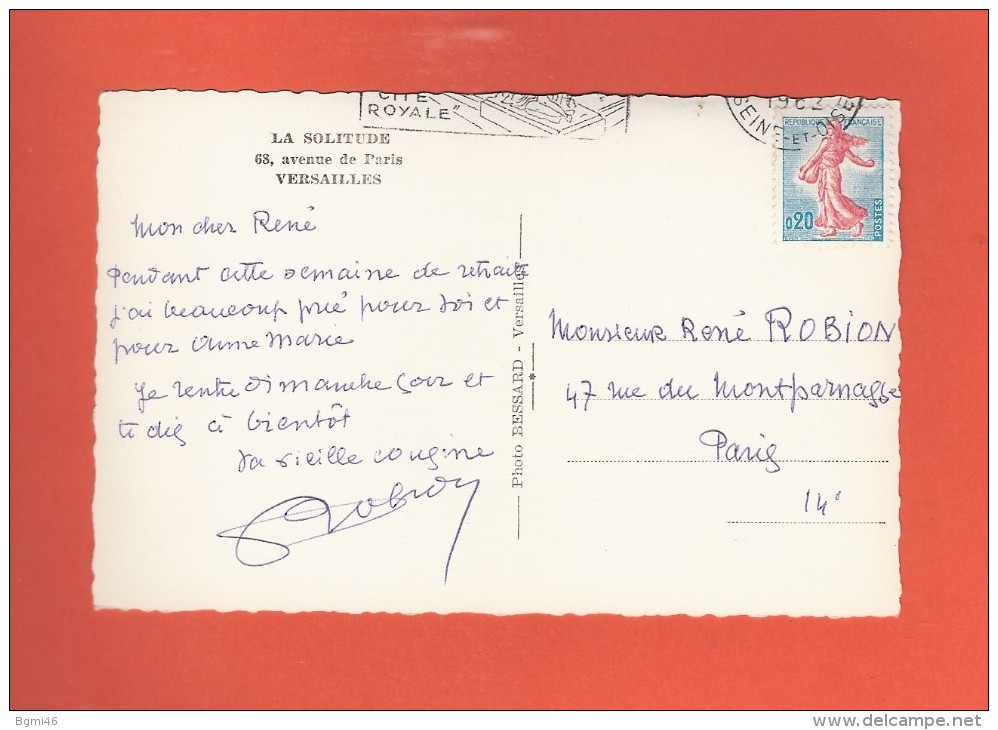 CITÉ
ROYALE"
1962
SEINE-ET-OISE
REPUBLIQUE FRANÇAISE
0,20
POSTES
LA SOLITUDE
68, avenue de Paris
VERSAILLES
Mon cher René
Pendant cette semaine de retraite
j'ai beaucoup prié pour toi et
pour Anne Marie
Je rentre Dimanche soir et
te dis à bientôt
Ta vieille cousine
Robion
Photo BESSARD - Versailles
Monsieur René ROBION
47 rue du Montparnasse
Paris
14e
Bgmi46
delcampe.net